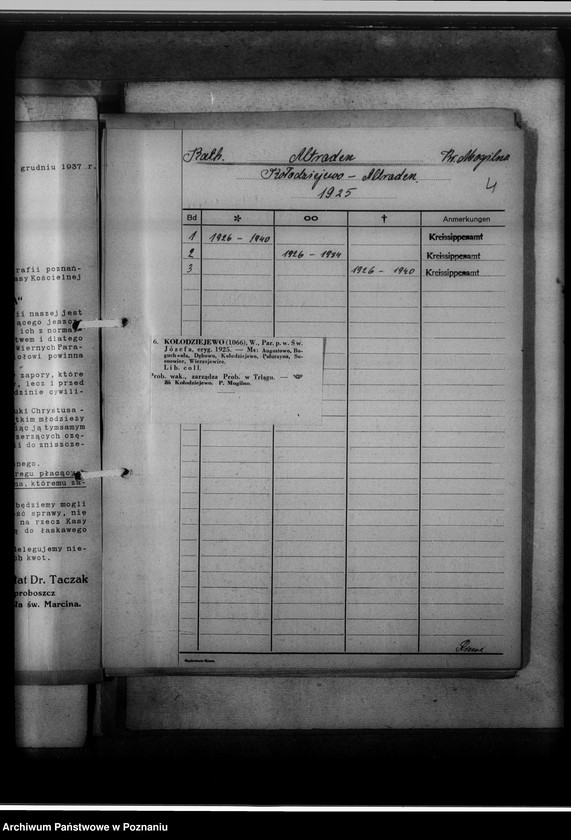 grudniu 1937 r.
rafii poznań-
asy Kościelnej
ii naszej jest
ącego jeszcze
ich z norma
twem i dlatego
wiernych Para-
ołowi powinna
zapory, które
, lecz i przed
dzinie cywili-
uki Chrystusa -
tkim młodzieży
iąc ją tymsamym
szerzących czę-
i do zniszcze-
nego.
regu płacący
na, któremu za-
będziemy mogli
ść sprawy, nie
na rzecz Kasy
ą do łaskawego
elegujemy nie-
ch kwot.
łat Dr. Taczak
proboszcz
ła św. Marcina.
Kath. Altraden Kr. Mogilno
Kołodziejewo - Altraden.
1925
4
Bd * ∞ † Anmerkungen
1 1926 - 1940 Kreissippenamt
2 1926 - 1934 Kreissippenamt
3 1926 - 1940 Kreissippenamt
6. KOŁODZIEJEWO (1066), W., Par. p. w. Św.
Józefa, eryg. 1925. — Mc: Augustowo, Bo-
guchwała, Dębowo, Kołodziejewo,
Lib. coll.
Prob. wak., zarządza Prob. w Trlągu. —
Kołodziejewo. P. Mogilno.
Archiwum Państwowe w Poznaniu